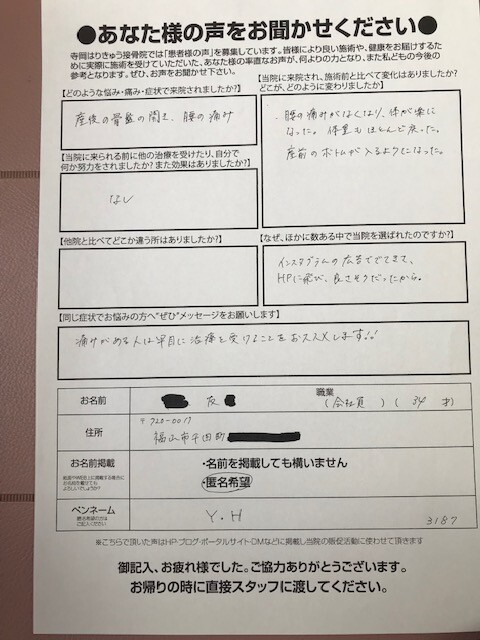 ●あなた様の声をお聞かせください●
寺岡はりきゅう接骨院では「患者様の声」を募集しています。皆様により良い施術や、健康をお届けするた
めに実際に施術を受けていただいた、あなた様の率直なお声が、何よりの力となり、また私ども今後の
参考となります。ぜひ、お声をお聞かせ下さい。
【どのような悩み・痛み・症状で来院されましたか?】
産後の骨盤の開き、腰の痛み
【当院に来院され、施術前と比べて変化はありましたか?
どこが、どのように変わりましたか】
・腰の痛みがなくなり、体が楽に
なった。体重もほとんど戻った。
産前のボトムが入るようになった。
【当院に来られる前に他の治療を受けたり、自分で
何か努力をされましたか?また効果はありましたか?】
なし
【他院と比べてどこか違う所はありましたか?】
【なぜ、ほかに数ある中で当院を選ばれたのですか?】
インスタグラムの広告ででてきて、
HPに飛び、良さそうだったから。
【同じ症状でお悩みの方へ"ぜひ"メッセージをお願いします】
痛みがある人は早目に治療を受けることをおススメします!!
お名前
友
職業
(会社員)(34才)
住所
〒720-0017
福山市千田町
お名前掲載
・名前を掲載しても構いません
・匿名希望
ペンネーム
匿名希望の方は
ご記入ください
Y・H
3187
※こちらで頂いた声はHP・ブログ・ポータルサイト・DMなどに掲載し当院の販促活動に使わせて頂きます
御記入、お疲れ様でした。ご協力ありがとうございます。
お帰りの時に直接スタッフに渡してください。